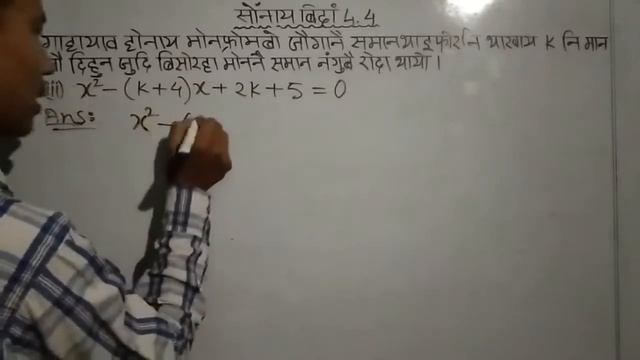 सोंनाय बिदां 4.4
गाहायाव होनाय मोनफ्रोमबो जौगानै समानथाइफोरनि थाखाय K नि मान
दिहुन जुदि बिसोरहा मोननै समान नंगुबै रोदा थायो ।
x² – (K + 4)x + 2K + 5 = 0
Ans:
x² –